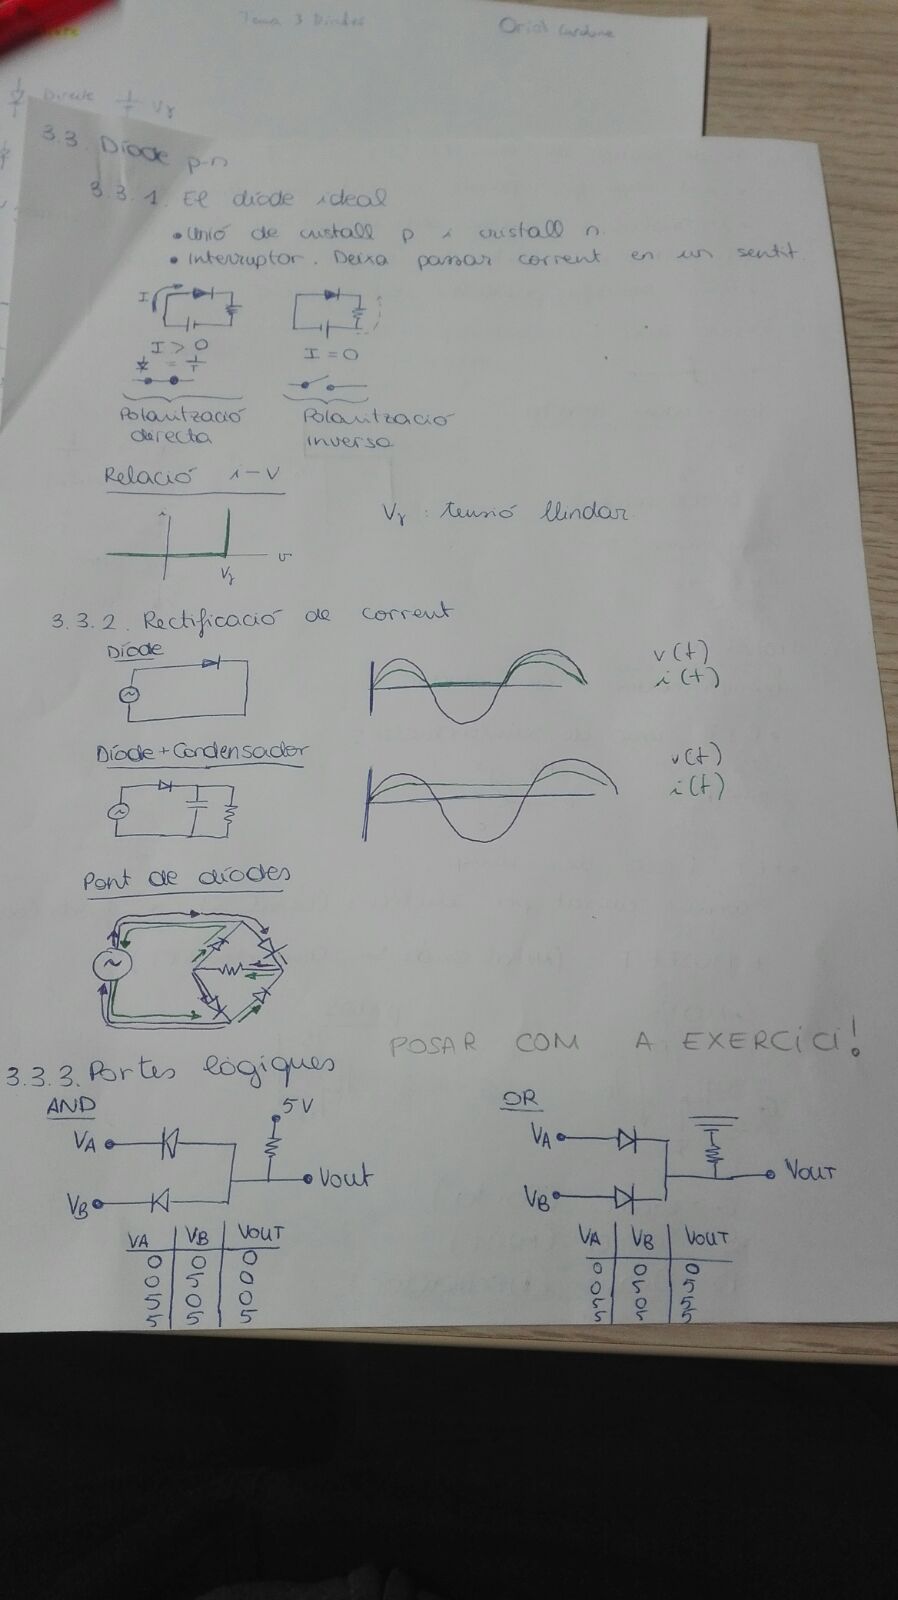 Tema 3 Díodes
Oriol
Directe Vγ
3.3. Díode p-n
3.3.1. El díode ideal
• Unió de cristall p i cristall n.
• Interruptor. Deixa passar corrent en un sentit.
I
I > 0
I = 0
=
Polarització directa
Polarització inversa
Relació i-V
i
v
Vγ
Vγ : tensió llindar
3.3.2. Rectificació de corrent
Díode
v(t)
i(t)
Díode + Condensador
v(t)
i(t)
Pont de díodes
POSAR COM A EXERCICI!
3.3.3. Portes lògiques
AND
5V
VA
VB
Vout
VA VB VOUT
0 0 0
0 5 0
5 0 0
5 5 5
OR
VA
VB
VOUT
VA VB VOUT
0 0 0
0 5 5
5 0 5
5 5 5